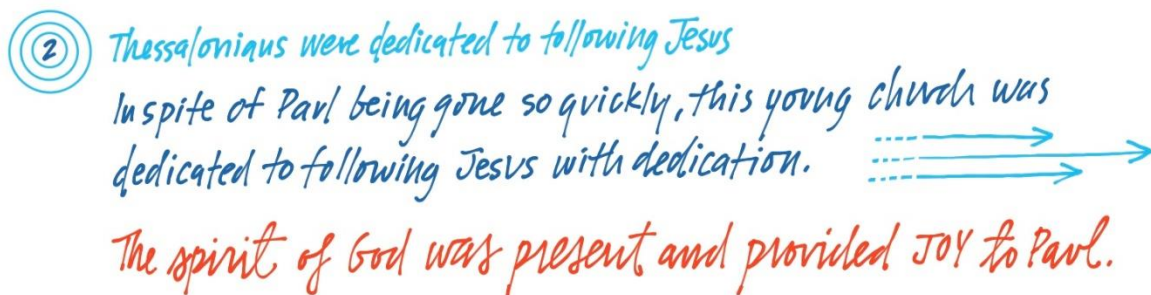 2 Thessalonians were dedicated to following Jesus
In spite of Paul being gone so quickly, this young church was
dedicated to following Jesus with dedication.
The spirit of God was present and provided JOY to Paul.